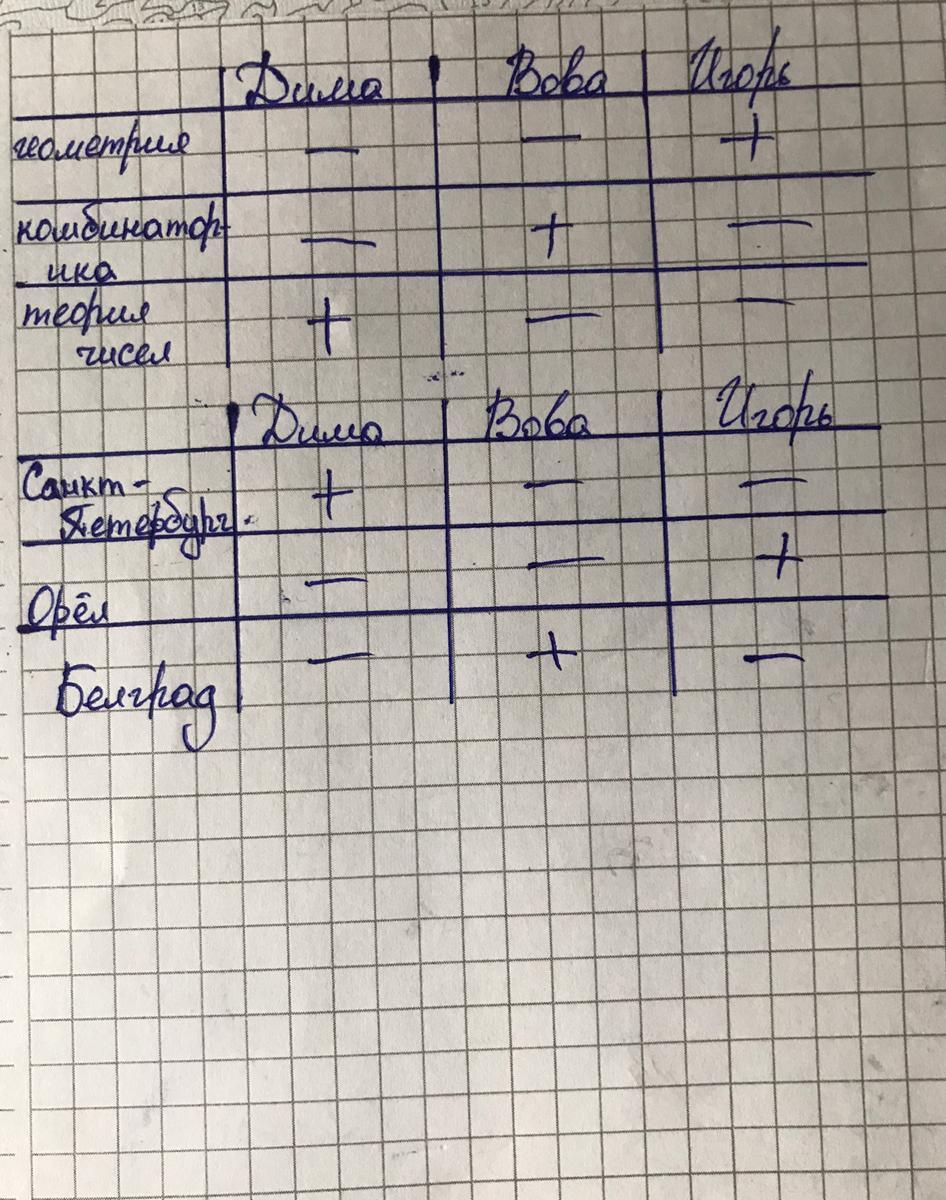 Дима Вова Игорь
геометрия — — +
комбинатор-
- ика — + —
теория + — —
чисел
Дима Вова Игорь
Санкт- + — —
Петербург.
Орёл — — +
Белград — + —